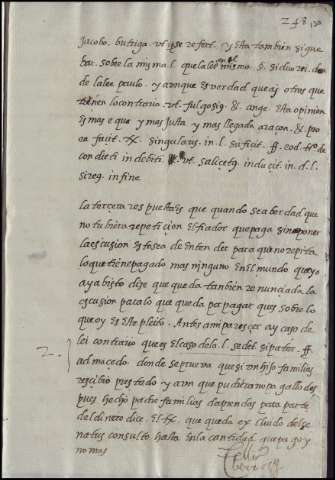 248
Jacobo. butriga. vt ipse refert. y esta tambien sigue
bar. sobre la misma l. que la en el mismo §. si duo rei. don
de la lee paulo. y aunque es verdad que ay otros que
tienen lo contrario. vt. fulgosig. & ange. esta opinion
es mas e que y mas Justa y mas llegada a raçon. & pro
ea facit. tx. singularis. in l. si fecit. ff. cod. tto. de
condicti indebiti. vt. salicetg. inducit in. d. l.
si reg. in fine.
la tercera respuesta es que quando sea berdad que
no tubiera repeticion el fiador que paga sin oponer
la escusion esto se a de entender para que no repita
lo que tiene pagado mas ninguno en el mundo que yo
aya bisto dize que queda tambien renunciada la
escusion para lo que queda por pagar que es sobre lo
que oy es este pleito. Antes a mi parescer ay caso de
lei contrario que es el caso de la l. sed et si pater. ff.
ad macedo. donde se prueva que si un hijo familias
rescibio prestado y aun que pudiera no pagallo des
pues hecho padre familias da prendas para parte
del dinero dize. El tx. que queda excluido del se
natus consulto hasta en la cantidad que pago y
no mas
2.